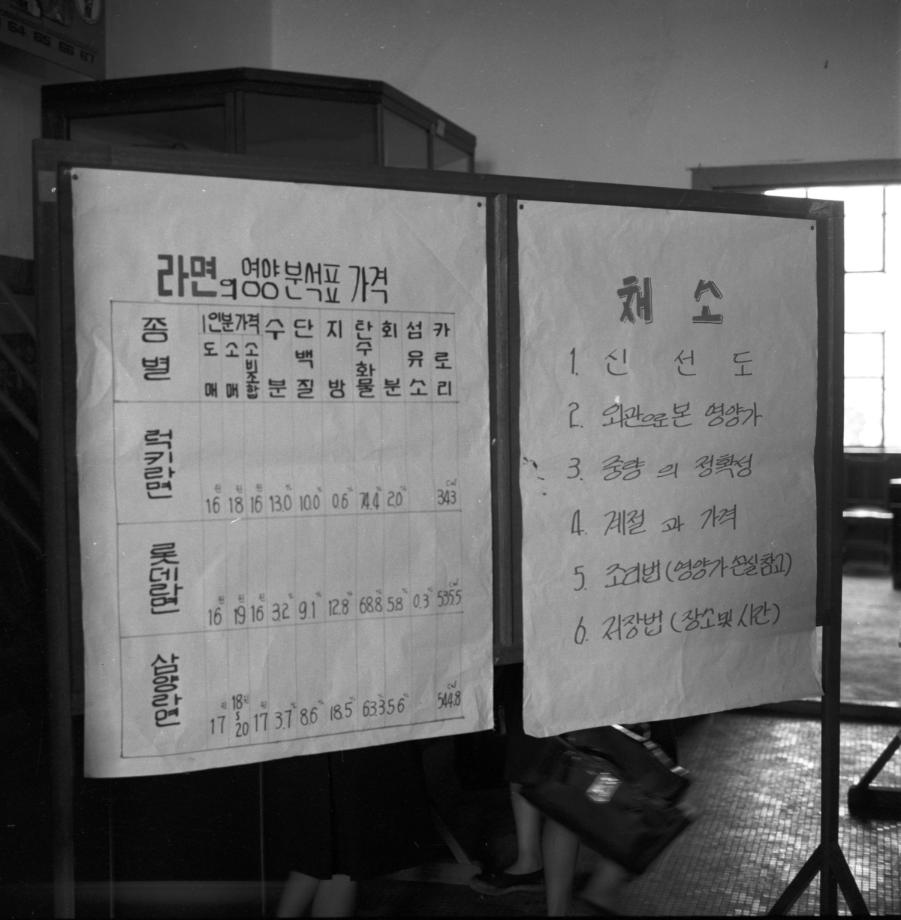 64 65 66 67
라면의 영양분석표 가격
종별 1인분가격 수분 단백질 지방 탄수화물 회분 섬유소 카로리
도매 소매 소비조합
럭키라면 16원 18원 16원 13.0% 10.0% 0.6% 74.4% 2.0% 343Cal
롯데라면 16 19 16 3.2% 9.1% 12.8% 68.8% 5.8% 0.3% 535.5Cal
삼양라면 17원 18원 5 20 17% 3.7% 8.6% 18.5% 63.3 5.6% 544.8Cal
채소
1. 신선도
2. 외관으로 본 영양가
3. 중량의 정확성
4. 계절과 가격
5. 조리법(영양가 손실 참고)
6. 저장법(장소 및 시간)